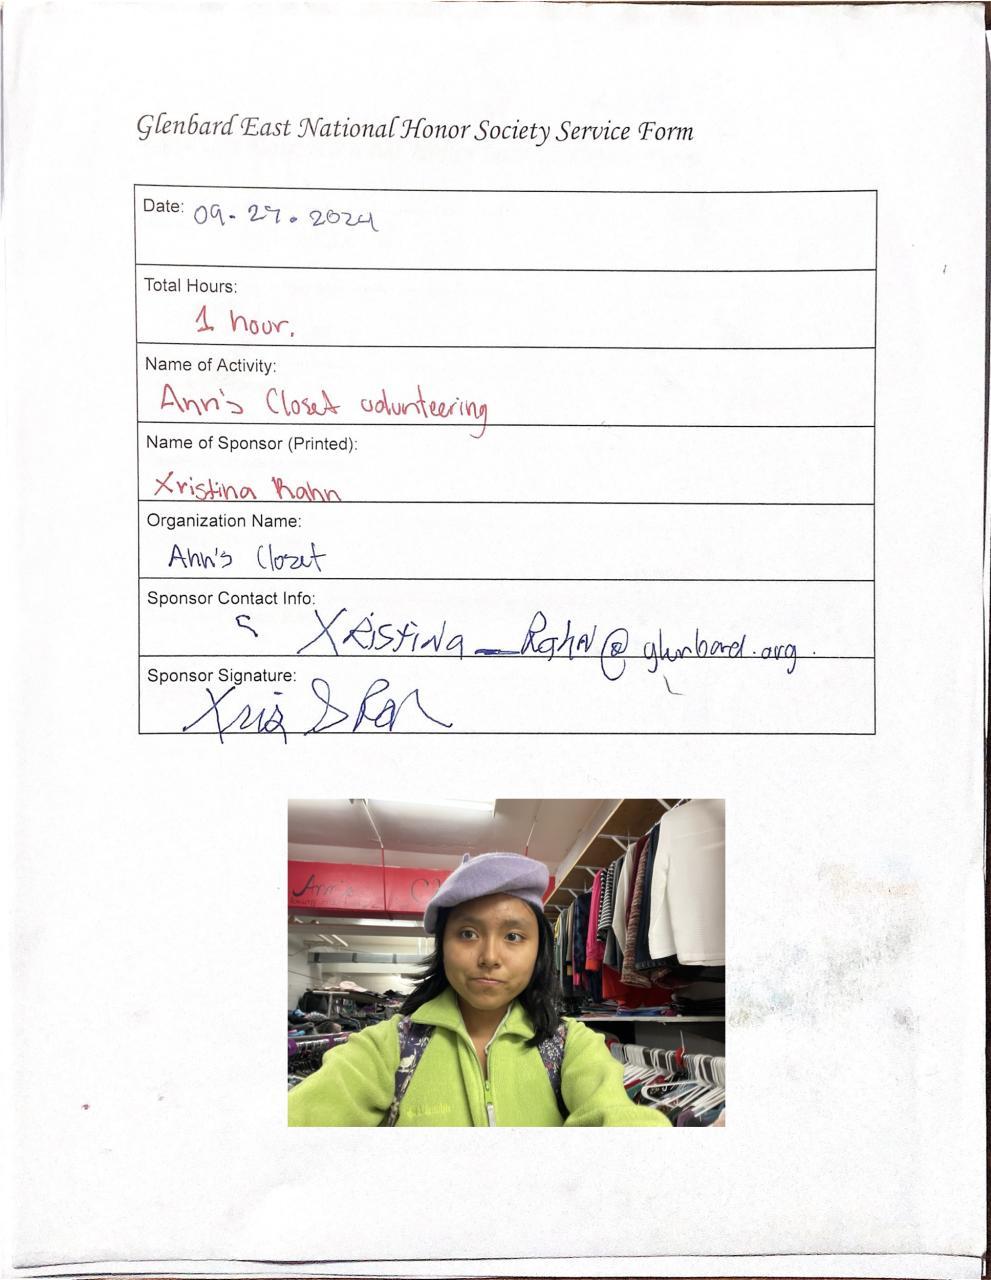 Glenbard East National Honor Society Service Form
Date: 09.27.2024
Total Hours:
1 hour.
Name of Activity:
Ann's Closet volunteering
Name of Sponsor (Printed):
Xristina Rahn
Organization Name:
Ann's Closet
Sponsor Contact Info:
Xristina_Rahn@glenbard.org.
Sponsor Signature:
Ann's